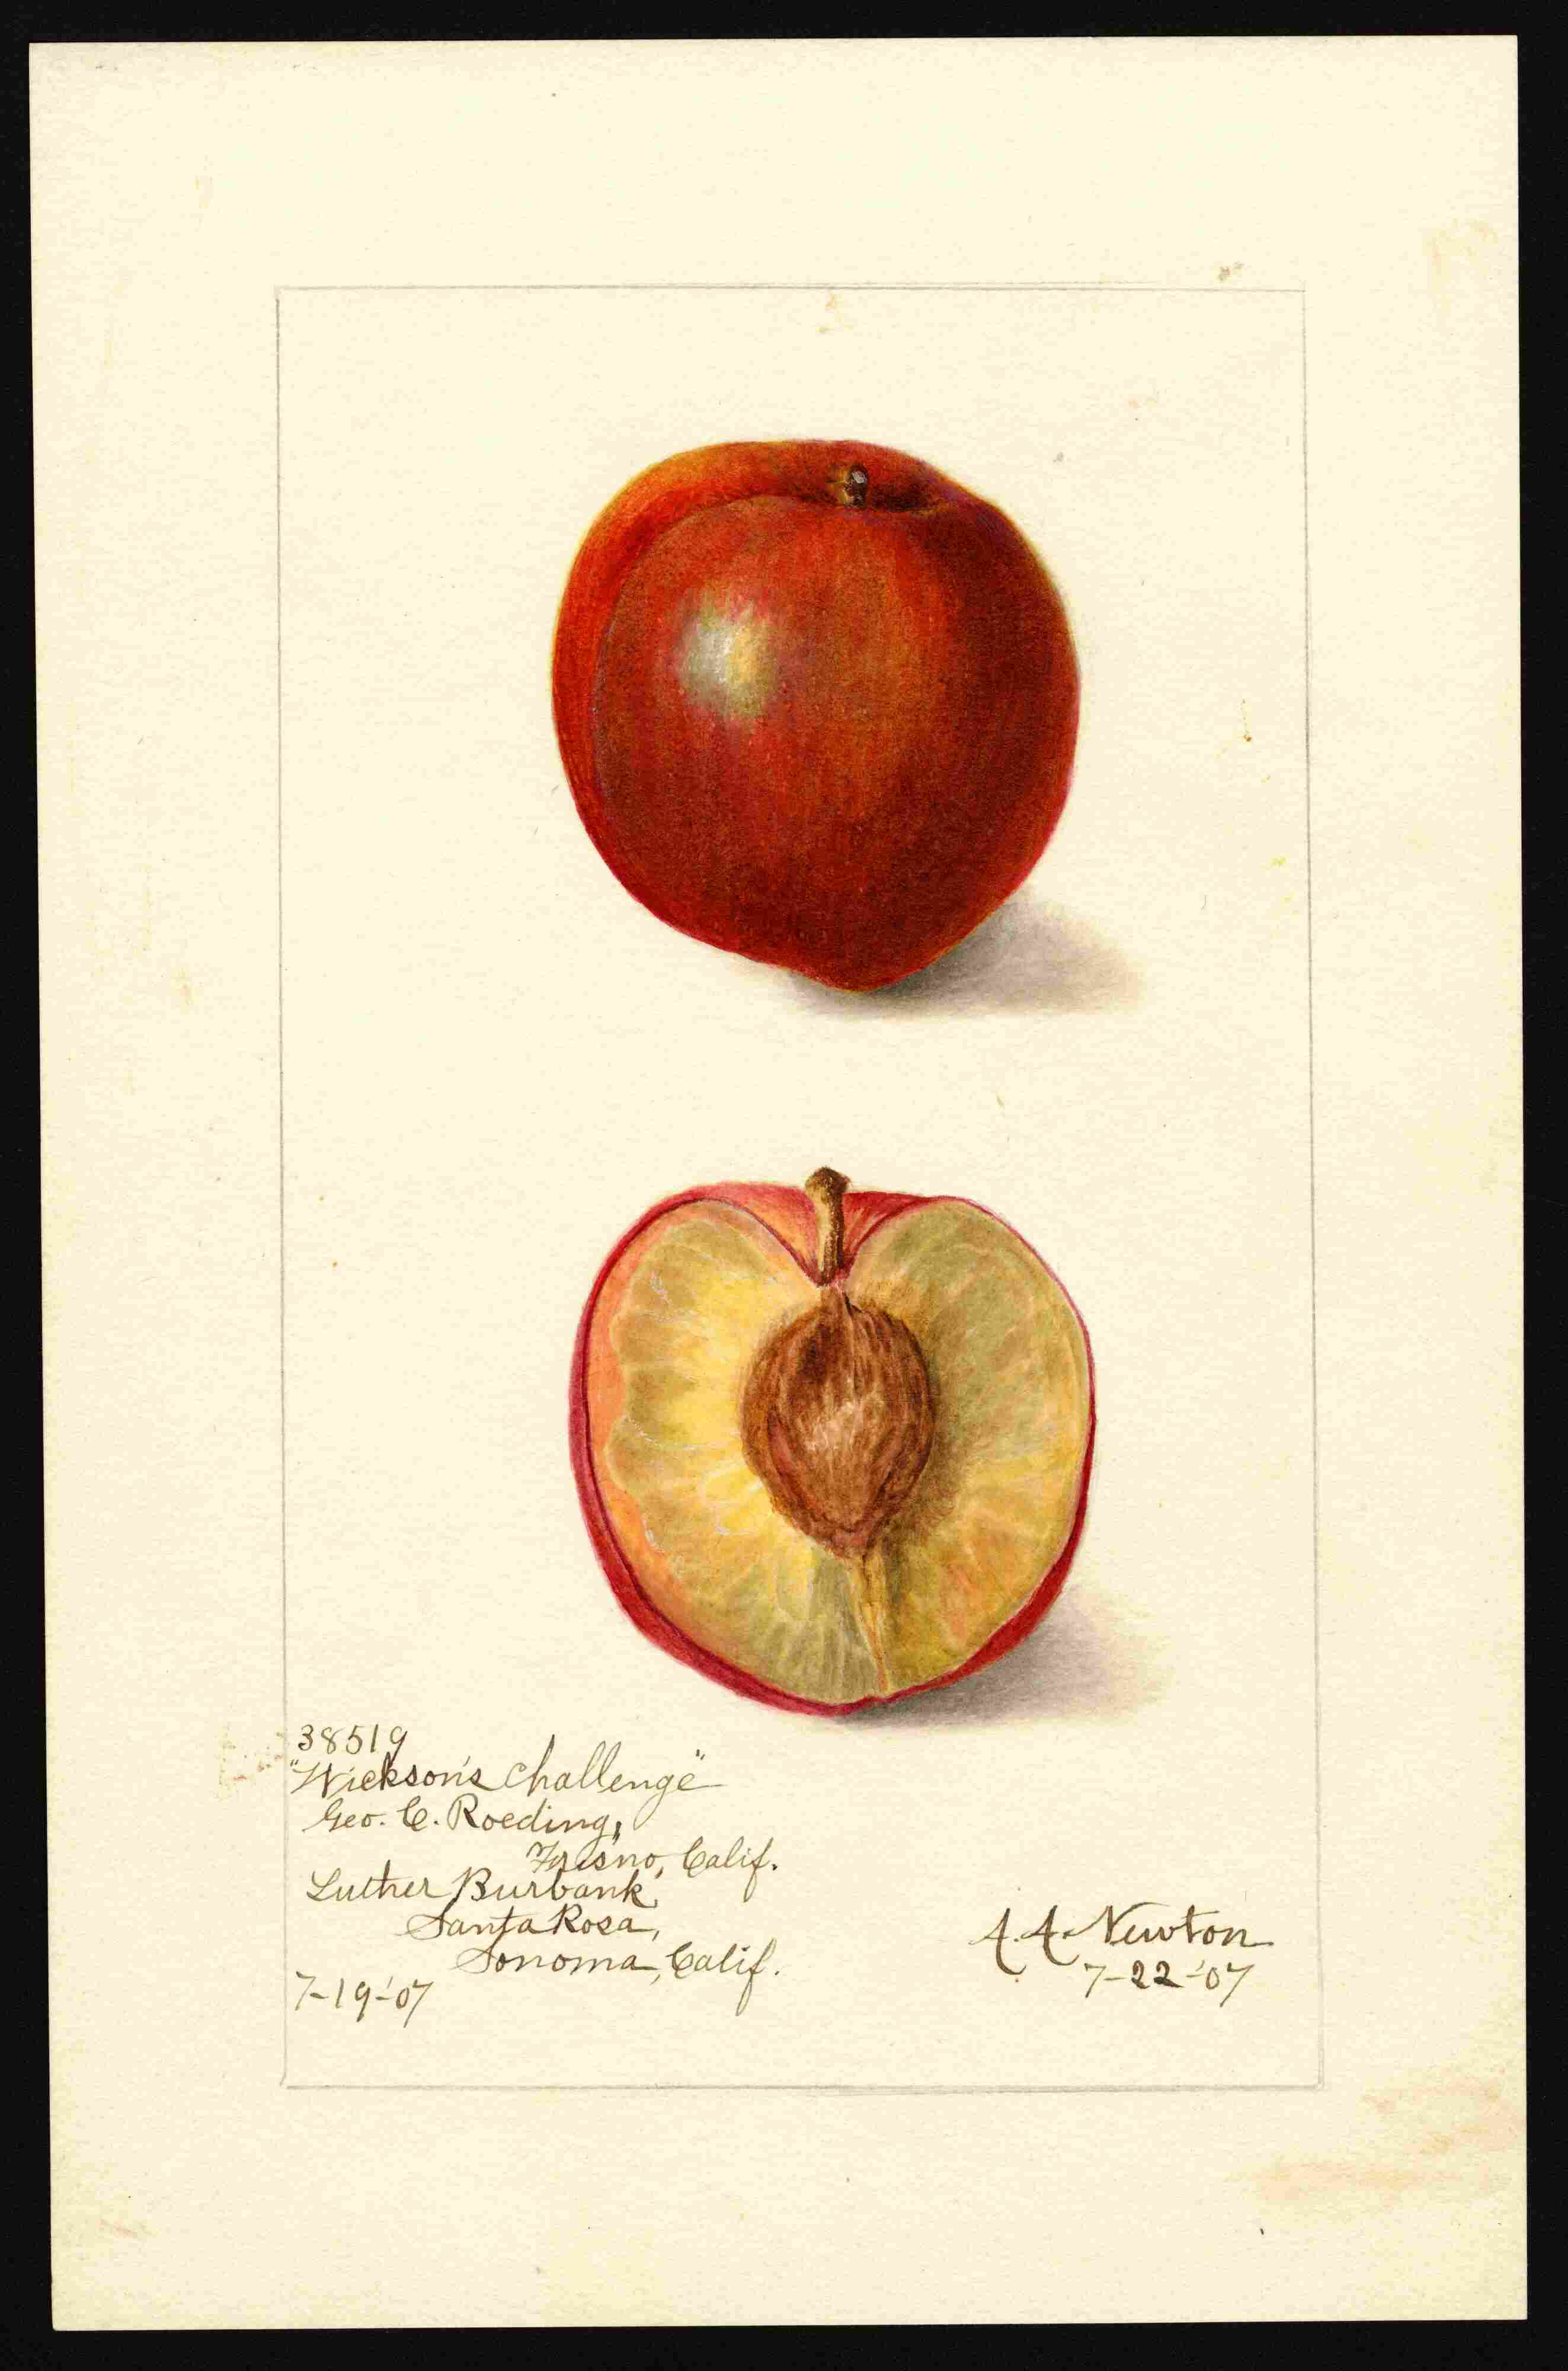 38519
"Wickson's Challenge"
Geo. C. Roeding,
Fresno, Calif.
Luther Burbank,
Santa Rosa,
Sonoma, Calif.
7-19-'07
A. A. Newton
7-22-'07